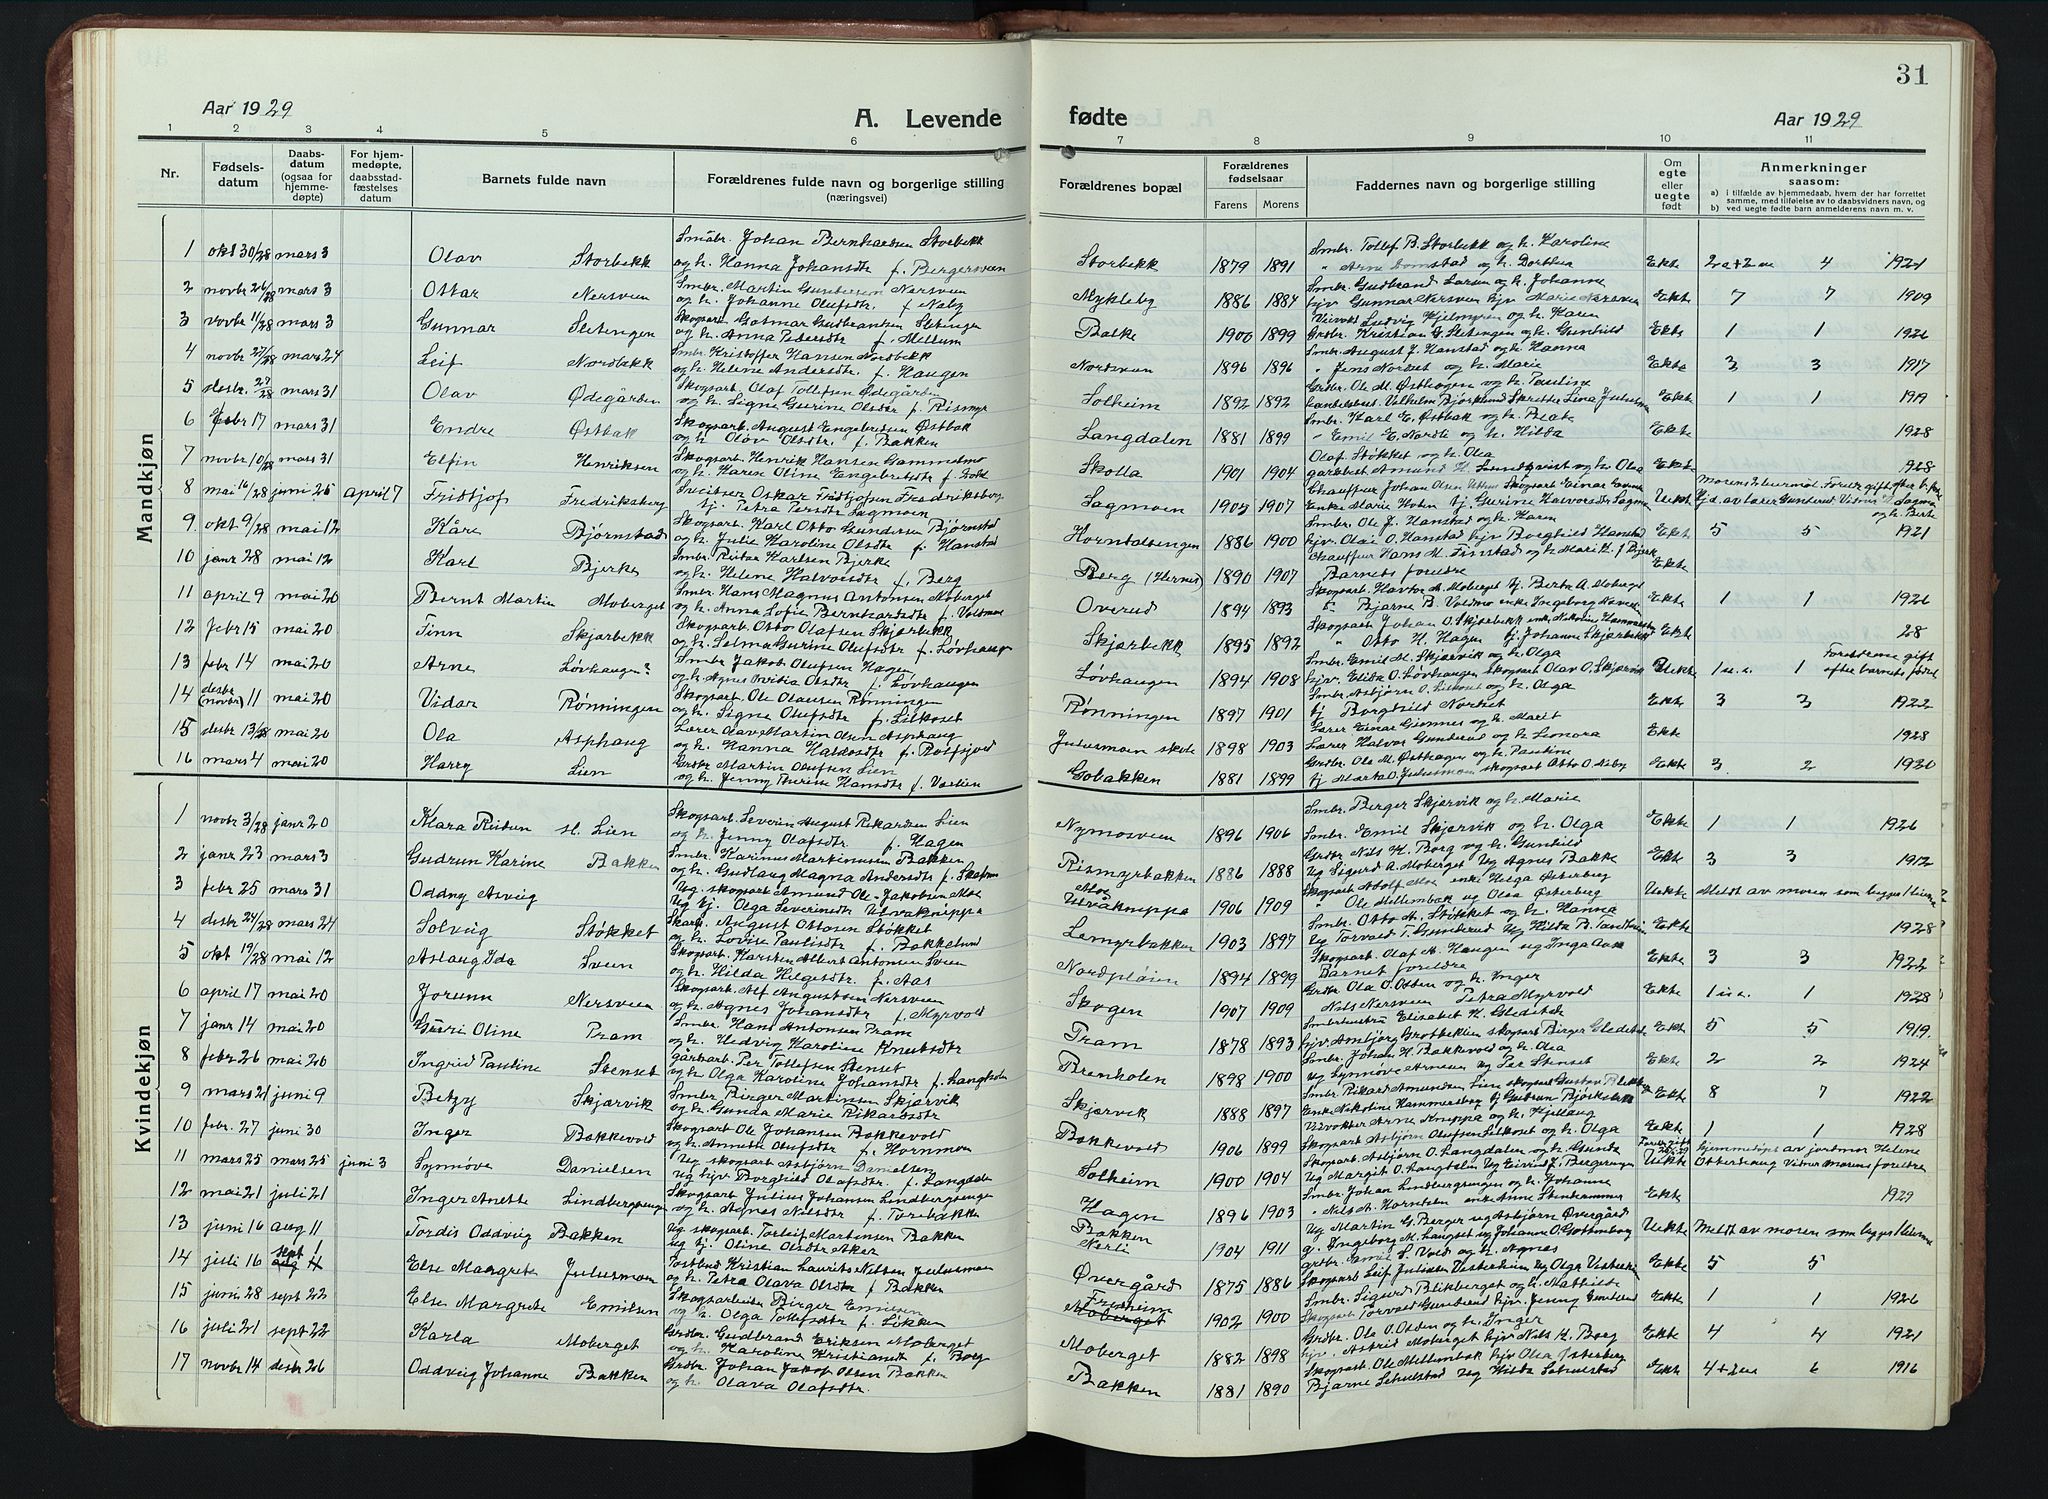 31
Aar 1929
A. Levende fødte
Aar 1929
1 2 3 4 5 6 7 8 9 10 11
Nr. Fødsels-datum Daabs-datum (ogsaa for hjemme-døpte) For hjem-medøpte, daabsstad-fæstelses datum Barnets fulde navn Forældrenes fulde navn og borgerlige stilling (næringsvei)
Forældrenes bopæl Forældrenes fødselsaar Farens Morens Faddernes navn og borgerlige stilling Om egte eller uegte født Anmerkninger saasom:
a) i tilfælde av hjemmedaab, hvem der har forrettet samme, med tilføielse av to daabsvidners navn, og
b) ved uegte fødte barn anmelderens navn m. v.
Mandkjøn
1 okt 30/28 mars 3 Olav Storbekk Småbr. Johan Bernhardsen Storbekk
og h. Hanna Johansdtr f. Bergersveen Storbekk 1879 1891 Smbr. Tollef B. Storbekk og h. Karoline
" Arne Domstad og h. Dorthea Ekte 4 1921
2 novbr 26/28 mars 3 Ottar Nersveen Smbr. Martin Gundersen Nersveen
og h. Johanne Olufsdtr f. Næby Mykleby 1886 1884 Smbr. Gudbrand Larsen og h. Johanne
hjv Gunnar Nersveen hjv Marie Nersveen Ekte 7 7 1909
3 novbr 11/28 mars 3 Gunnar Sletengen Skogsarb Gotmar Gudbrandsen Sletengen
og h. Anna Pedersdtr f. Mellum Balke 1900 1899 Ludvig Hjelmgren og h. Karen
Grdbr. Kristian G. Sletengen og h. Gunhild Ekte 1 1 1926
4 novbr 27/28 mars 24 Leif Nordbekk Smbr. Kristoffer Hansen Nordbekk
og h. Helene Andersdtr f. Haugen Nordsveen 1896 1896 Smbr. August J. Hanstad og h. Hanna
" Jens Nordset og h. Marie Ekte 3 3 1917
5 desbr. 27/28 mars 31 Olav Ødegården Skogsarb Olaf Tollefsen Ødegården
og h. Signe Gurine Olsdtr f. Rismyr Solheim 1892 1892 Grdbr. Ole M. Østhagen og h. Pauline
Ekte 1 1 1919
6 febr 17 mars 31 Endre Østbak Skogsarb. August Engebretsen Østbak
og h. Olov Olsdtr. f. Bakken Langdalen 1881 1899 Smbr. Karl E. Østbak og h. Beate
" Emil E. Nordli og h. Hilda Ekte 1928
7 novbr 10/28 mars 31 Elfin Henriksen Skogsarb. Henrik Hansen Gammelmo
og h. Karen Oline Engebretsdtr f. Dolk Skolla 1901 1904 Olaf Støkket og h. Olea
Amund H. Lundqvist og h. Olea Ekte 928
8 mai 16/28 juni 25 april 7 Fridtjof Fredriksberg Oskar Fridtjofsen Fredriksberg
tj. Petra Persdtr Sagmoen Sagmoen 1905 1907 Chauffeur Johan Olsen
Enke Marie Hoten tj. Gurine Halvorsdtr Sagmoen Uekte
9 okt 9/28 mai 12 Kåre Bjørnstad Skogsarb. Karl Otto Gundersen Bjørnstad
og h. Julie Karoline Olsdtr f. Hanstad Horndalsengen 1886 1900 Smbr. Ole J. Hanstad og h. Karen
hjv. Olai O. Hanstad hjv Borghild Hanstad Ekte 5 5 1921
10 janr 28 mai 12 Karl Bjerke Smbr Reidar Karlsen Bjerke
og h. Helene Halvorsdtr f. Berg Berg (Hernes) 1890 1907 Chauffeur Hans M. Finstad
Barnets foreldre Ekte
11 april 9 mai 20 Bernt Martin Moberget Smbr. Hans Magnus Antonsen Moberget
og h. Anna Sofie Berntsdtr f. Voldmo Overud 1894 1893 Skogsarb. Harton A. Moberget tj. Berte A. Moberget
Bjarne B. Voldmo enke Ingeborg Ekte 1 1 1926
12 febr 15 mai 20 Finn Skjærbekk Skogsarb Otto Olafsen Skjærbekk
og h. Selma Gurine Olufsdtr f. Løvhaugen Skjærbekk 1895 1892 Skogsarb Johan O. Skjærbekk enke Nikoline Hammersberg
" Otto H. Hagen tj. Johanne Skjærbekk Ekte 28
13 febr 14 mai 20 Arne Løvhaugen? Smbr Jakob Olufsen Hagen
og h. Agnes Ovidia Olsdtr f. Løvhaugen Løvhaugen 1894 1908 Smbr. Emil M. Skjærvik og h. Olga
hjv. Elida O. Løvhaugen skogsarb Olav O. Skjærvik Uekte 1 u.e. 1 Foreldrene gift
efter barnets fødsel
14 desbr (novbr) 11 mai 20 Vidar Rønningen Skogsarb. Ole Olausen Rønningen
og h. Signe Olufsdtr f. Lilkoset Rønningen 1897 1901 Smbr. Asbjørn O. Lilkoset og h. Olga
tj Borghild Nordset Ekte 3 3 1922
15 desbr 13/28 mai 20 Ola Asphaug Lærer Olav Martin Olsen Asphaug
og h. Hanna Haldosdtr f. Botfsjord Julusmoen skole 1898 1903 Lærer Einar Gjennes og h. Marit
Lærer Halvor Gunderud og h. Lenora Ekte 1928
16 mars 4 mai 20 Harry Lien Grdbr Martin Olufsen Lien
og h. Jenny Therese Hansdtr f. Vaslien Gobakken 1881 1899 Grdbr. Ole M. Østhagen og h. Pauline
tj Marta O. Julusmoen skogsarb Otto O. Næby Ekte 3 2 1920
Kvindekjøn
1 novbr 3/28 janr 20 Klara Reidun Lien Skogsarb. Severin August Rikardsen Lien
og h. Jenny Olafsdtr f. Hagen Nymosveen 1896 1906 Smbr. Berger Skjærvik og h. Marie
Smbr. Emil Skjærvik og h. Olga Ekte 1 1 1926
2 janr 23 mars 3 Gudrun Karine Bakken Smbr. Karinus Martinusen Bakken
og h. Gudlaug Magna Andersdtr f. Rismyrbakken 1886 1888 Grdbr Nils K. Borg og h. Gunhild
Ug Sigurd A. Moberget Ug Agnes Bakke Ekte 3 3 1912
3 febr 25 mars 31 Oddny Asvig Ug. skogsarb Amund Ole Jakobsen Moe
Ug tj. Olga Severinsdtr Ulvåknippa Moe Ulvåknippa 1906 1909 Skogsarb Adolf Moe enke Helga Østerberg
" Ole Mellembak ug Olea Østerberg Uekte Meldt av moren som bygges kunne
4 desbr 24/28 mars 24 Solveig Støkket Skarb August Ottosen Støkket
og h. Lovise Paulisdtr f. Bakkelund Lemyrbakken 1903 1897 Smbr. Otto A. Støkket og h. Hanna
Ug Torvald T. Gunderud Ug Hilda B. Ekte 1928
5 okt 19/28 mai 12 Aslaug Ida Sveen Skogsarb. Karsten Albert Antonsen Sveen
og h. Hilda Helgesdtr f. Aas Nordpløien 1894 1899 Skogsarb Olaf A. Haugen ug Inga Aas
Barnets foreldre Ekte 3 3 1922
6 april 17 mai 20 Jorunn Nersveen Skogsarb. Alf Augustsen Nersveen
og h. Agnes Johansdtr f. Myrvold Skogen 1907 1909 Grdbr Ola O. Osten og h. Inger
Nils Nersveen Petra Myrvold Ekte 1 u.e. 1 1928
7 janr 14 mai 20 Guri Oline Pram Smbr. Hans Antonsen Pram
og h. Hedvig Karoline Knutsdtr Pram 1878 1893 Elisabet K. Gleditsh
hjv Ambjørg Grotbekken skogsarb Birger Gleditsh Ekte 5 5 1919
8 febr 26 mai 20 Ingrid Pauline Stenset gårdarb. Per Tollefsen Stenset
og h. Olga Karoline Johansdtr f. Langholen Brenholen 1898 1900 Smbr. Johan H. Bakkevold og h. Olea
Ug Synnøve Arnesen ug Per Stenset Ekte 2 2 1924
9 mars 21 juni 9 Betzy Skjærvik Smbr Birger Martinsen Skjærvik
og h. Gunda Marie Rikardsdtr Skjærvik 1888 1897 Smbr. Rikard Amundsen Lien skogsarb Gustav
Enke Nikoline Hammersberg tj Gudrun Ekte 8 7 1922
10 febr. 27 juni 30 Inger Bakkevold Skogsarb Ole Johansen Bakkevold
og h. Annette Olufsdtr f. Hornmoen Bakkevold 1906 1899 Veivokter Arne Knippa og h. Hjellaug
Skogsarb Asbjørn Olufsen Lilkoset og h. Olga Ekte 1 1 1928
11 mars 25 mars 25 juni 3 Synnøve Danielsen Ug skogsarb Asbjørn Danielsen
Ug hjv Borghild Olafsdtr. f. Langdalen Solheim 1900 1904 Skogsarb. Asbjørn O. Langdalen og h. Gunda
Ug Margit O. Langdalen Ug Eivind J. Bergerengen Uekte hjemmedøpt av jordmor Helene
Otterskaug Vitner Morens foreldre
12 mai 21 juli 21 Inger Anette Lindbergsengen Skogsarb Julius Johansen Lindbergsengen
og h. Agnes Nilsdtr f. Torebakken Hagen 1896 1903 Smbr. Johan Lindbergsengen og h. Johanne
" Nils A. Horndalen enke Anne Stenhammer Ekte 1929
13 juni 16 aug 11 Tordis Oddvig Bakken Ug skogsarb. Torleif Martinsen Bakken
ug tj. Oline Olsdtr Aker Bakken Nerli 1904 1911 Ug Martin G. Berger ug Asbjørn Øvergård
g. Ingeborg M. Langset ug Johanne O. Gottenborg Uekte Meldt av moren som bygges kunne
14 juli 16 sept 1 Else Margrete Julusmoen Postbud Kristian Laurits Nilsen Julusmoen
og h. Petra Olava Olsdtr f. Bakken Øvergård 1875 1886 grdbr. Emil S. Vold og h. Agnes
Skogsarb Leif Juliusen Vesterheim Ug Olga Vesterheim Ekte 5 5
15 juni 28 sept 22 Else Margrete Emilsen Skogsarbeider Birger Emilsen
og h. Olga Tollefsdtr f. Løkken Fredheim Moberget 1902 1900 Smbr. Sigurd Blikberget og h. Mathilde
Skogsarb Torvald Gunderud hjv. Jenny Gunderud Ekte 1 1 1926
16 juli 21 sept 22 Karla Moberget Grdbr. Gudbrand Eriksen Moberget
og h. Karoline Kristiansdtr f. Borg Moberget 1882 1898 Grdbr. Ola O. Osten og h. Inger
hjv. Astrid Moberget hjv Nils K. Borg Ekte 4 4 1921
17 novbr 14 desbr 26 Oddveig Johanne Bakken Grdbr. Johan Jakop Olsen Bakken
og h. Olava Olafsdtr. Bakken 1881 1890 Skogsarb. Ole Mellembak hjv Olea Østerberg
Bjarne Schulstad Ug Hilda Schulstad Ekte 4+2ue 6 1916